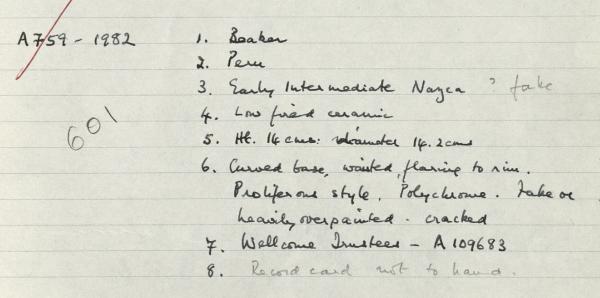 A759 - 1982 1. Beaker
2. Peru
3. Early Intermediate Nazca ? fake
4. Low fired ceramic
601
5. Ht. 14 cms: diameter 14.2 cms
6. Curved base, waisted, flaring to rim.
Proliferous style. Polychrome. Fake or
heavily overpainted. cracked
7. Wellcome Trustees - A 109683
8. Record card not to hand.